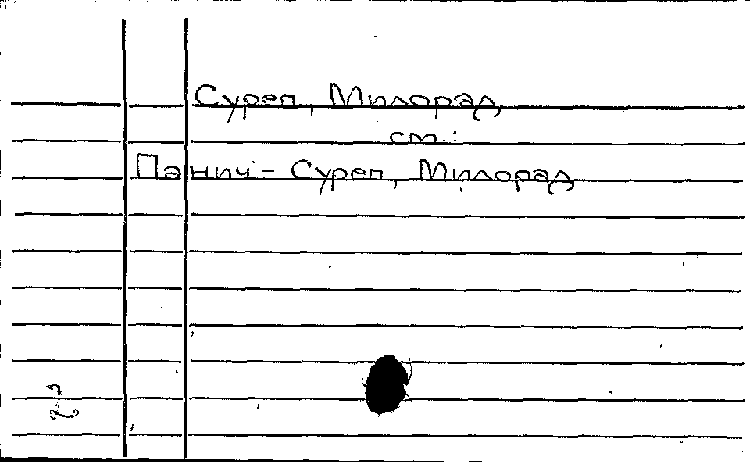 Суреп, Милорад
см.:
Панич – Суреп, Милорад